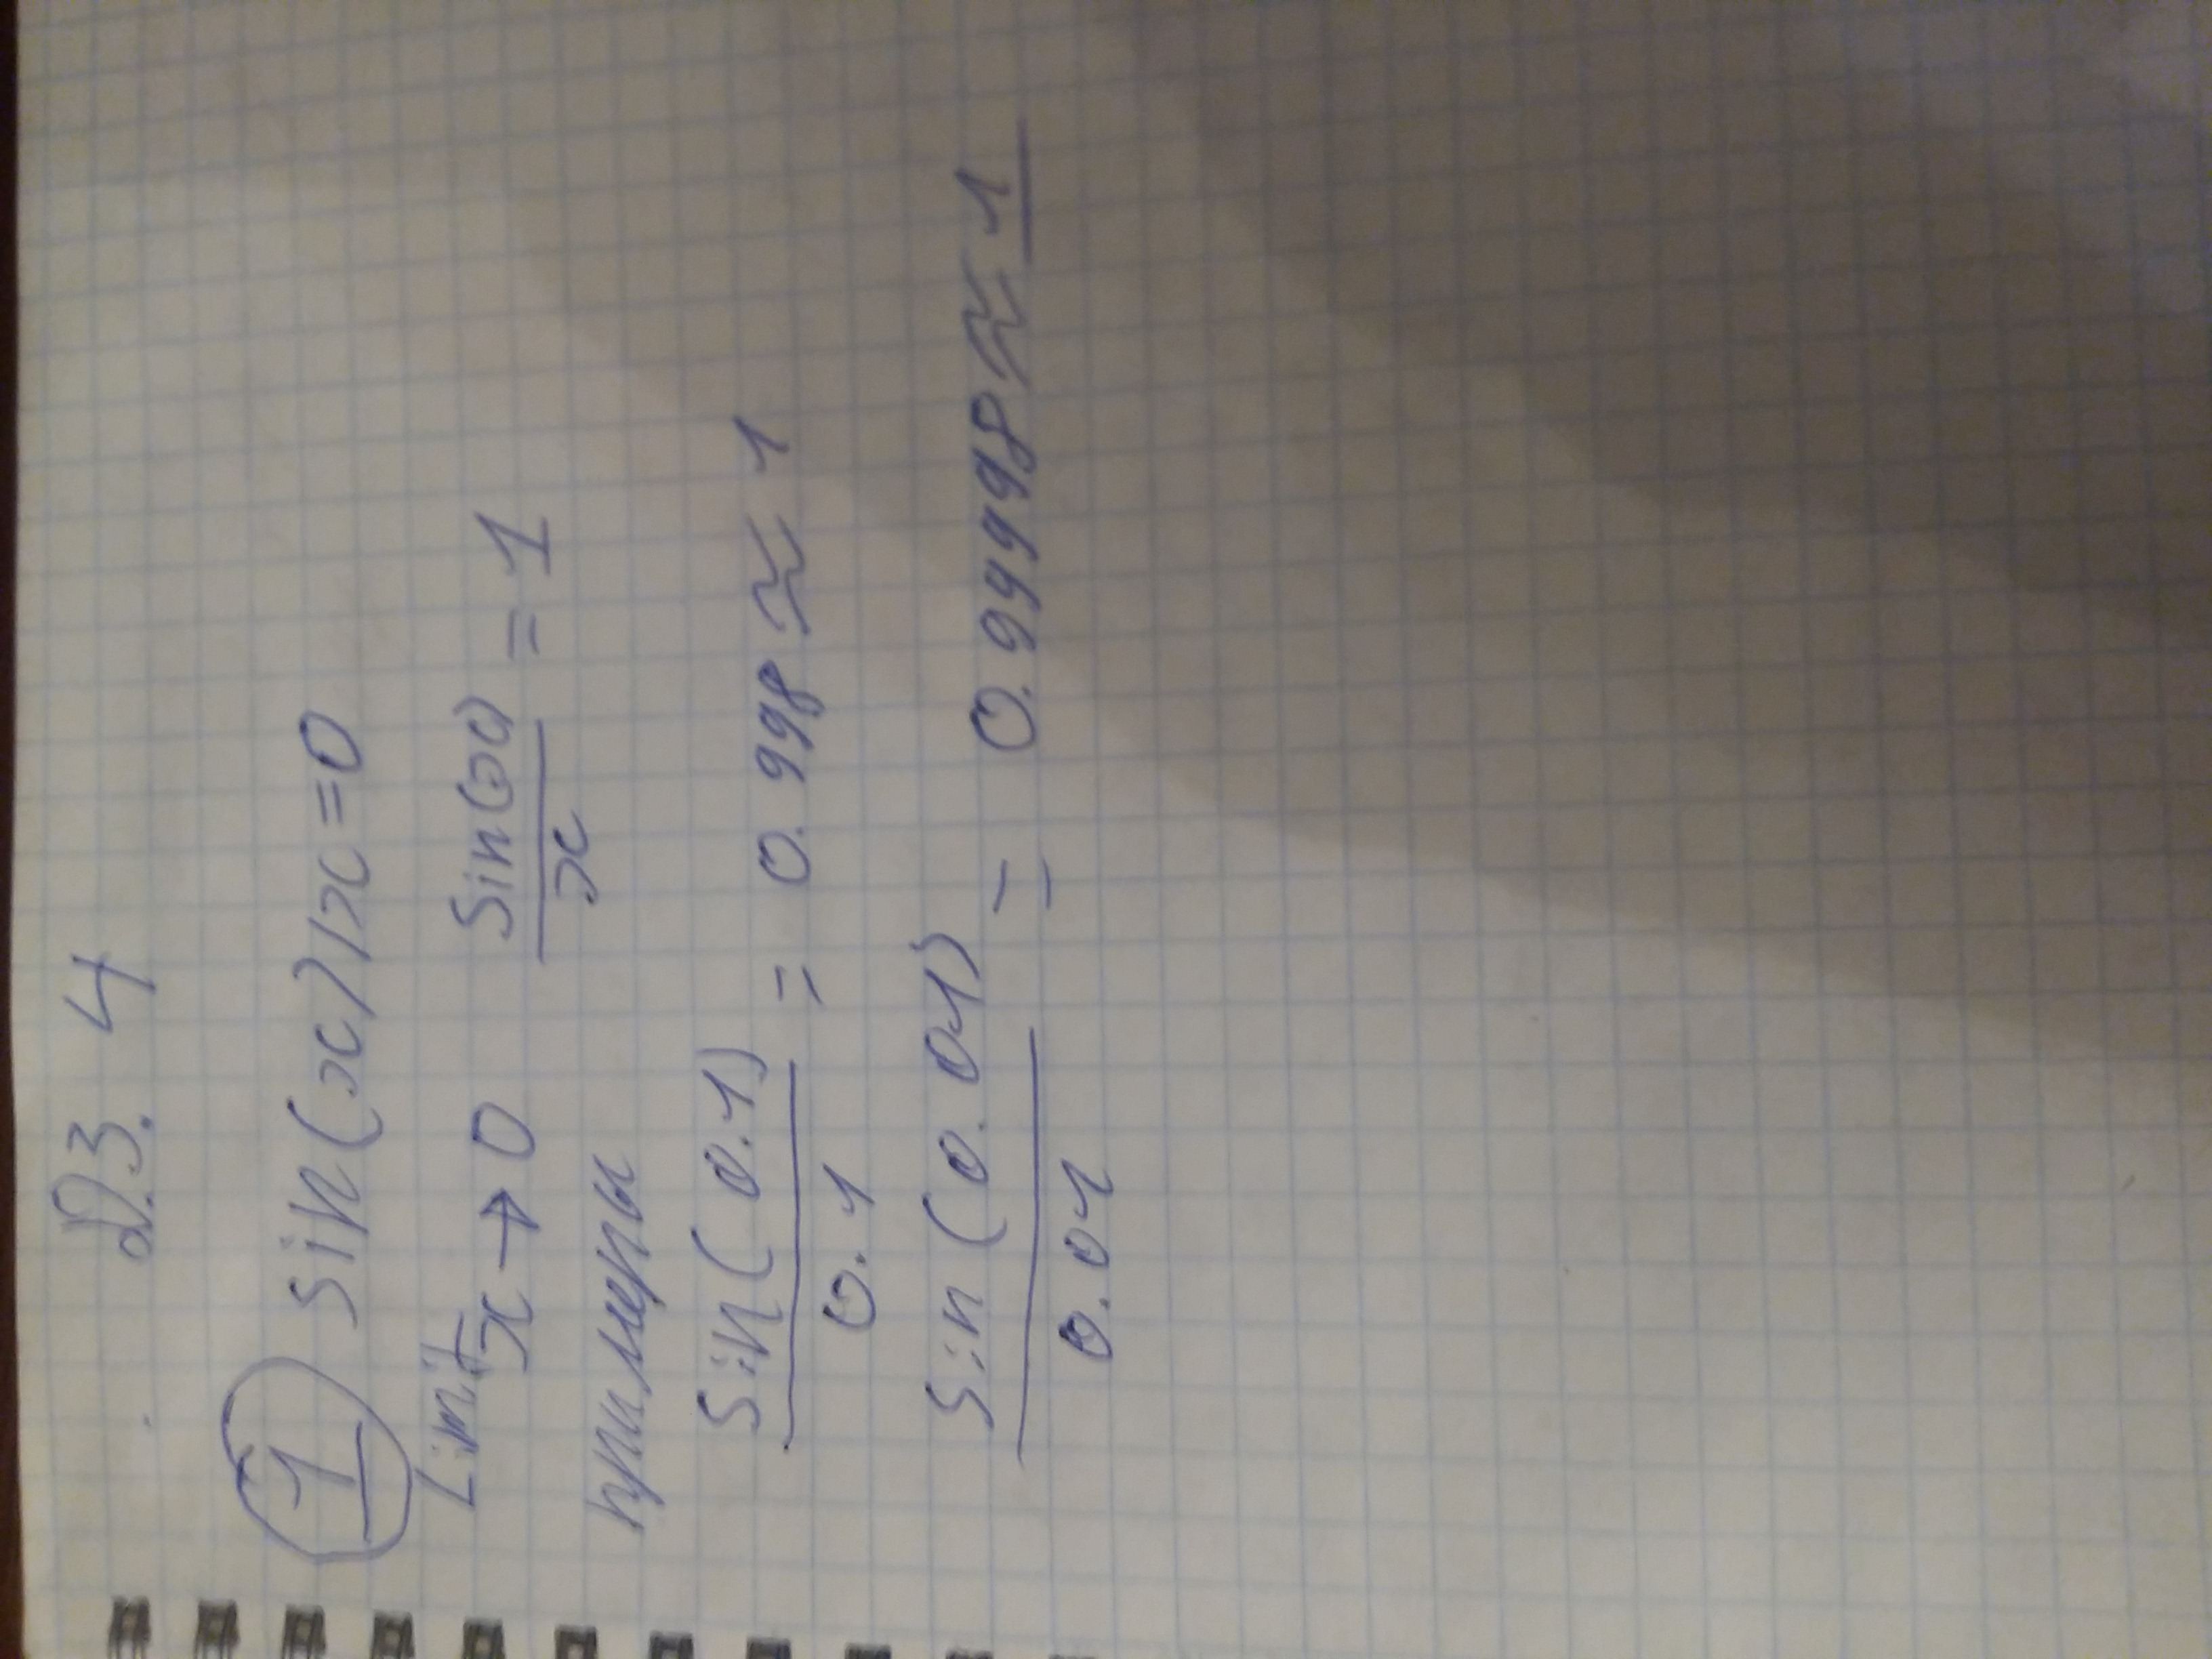 Д.З. 4
1 sin(x)/x=0
Limit x→0 sin(x)/x = 1
примеры
sin(0.1)/0.1 = 0.998 ≈ 1
sin(0.01)/0.01 = 0.99998 ≈ 1